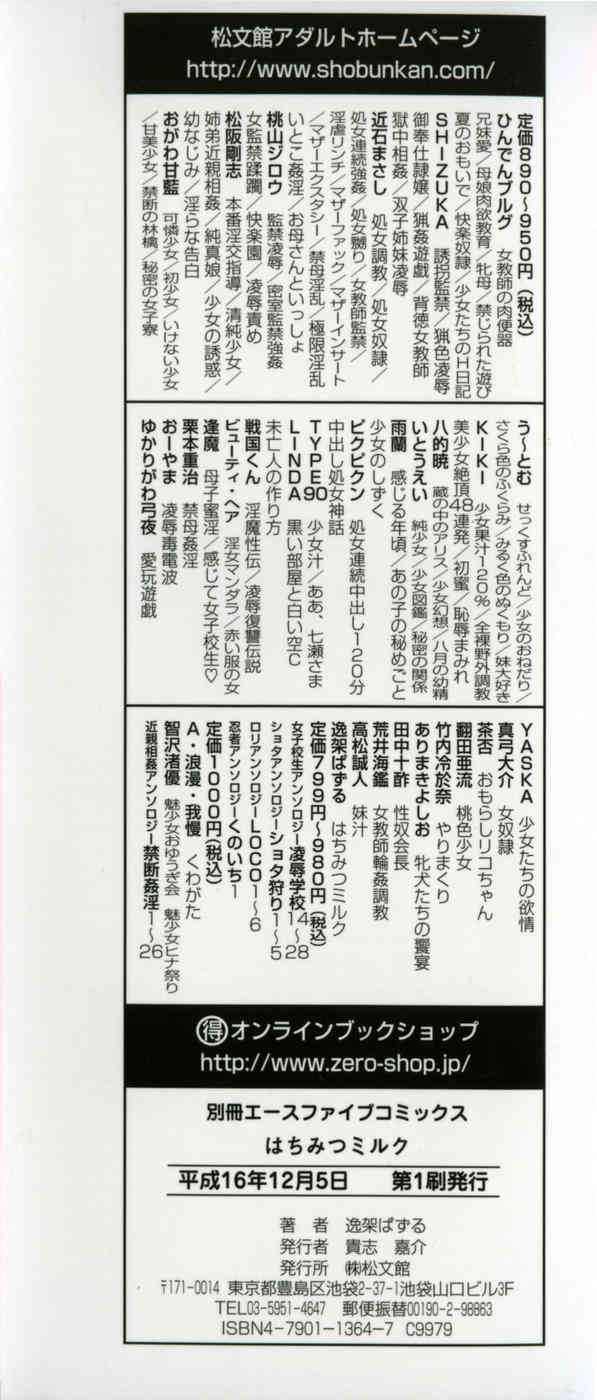 松文館アダルトホームページ
http://www.shobunkan.com/
定価890~950円(税込)
ひんでんブルグ 女教師の肉便器
兄妹愛/母娘肉欲教育/牝母/禁じられた遊び
夏のおもいで/快楽奴隷/少女たちのH日記
SHIZUKA 誘拐監禁/猟色凌辱
御奉仕隷嬢/猟姦遊戯/背徳女教師
獄中相姦/双子姉妹凌辱
近石まさし 処女調教/処女奴隷/
処女連続強姦/処女嬲り/女教師監禁/
淫虐リンチ/マザーファック/マザーインサート
/マザーエクスタシー/禁母淫乱/極限淫乱
いとこ姦淫/お母さんといっしょ
桃山ジロウ 監禁凌辱/密室監禁強姦
女監禁蹂躙/快楽園/凌辱責め
松阪剛志 本番淫交指導/清純少女/
姉弟近親相姦/純真娘/少女の誘惑/
幼なじみ/淫らな告白
おがわ甘藍 可憐少女/初少女/いけない少女
/甘美少女/禁断の林檎/秘密の女子寮
う~とむ せっくすふれんど/少女のおねだり/
さくら色のふくらみ/みるく色のぬくもり/妹大好き
KIKI 少女果汁120%/全裸野外調教
美少女絶頂48連発/初蜜/恥辱まみれ
八的暁 蔵の中のアリス/少女幻想/八月の幼精
いとうえい 純少女/少女図鑑/秘密の関係
雨蘭 感じる年頃/あの子の秘めごと
少女のしずく
ピクピクン 処女連続中出し120分
中出し処女神話
TYPE90 少女汁/ああ、七瀬さま
LINDA 黒い部屋と白い空C
未亡人の作り方
戦国くん 淫魔性伝/凌辱復讐伝説
ビューティ・ヘア 淫女マンダラ/赤い服の女
逢魔 母子蜜淫/感じて女子校生♡
栗本重治 禁母姦淫
おーやま 凌辱毒電波
ゆかりがわ弓夜 愛玩遊戯
YASKA 少女たちの欲情
真弓大介 女奴隷
茶否 おもらしリコちゃん
翻田亜流 桃色少女
竹内冷於奈 やりまくり
ありまきよしお 牝犬たちの饗宴
田中十酢 性奴会長
荒井海鑑 女教師輪姦調教
高松誠人 妹汁
逸架ぱずる はちみつミルク
定価799円~980円(税込)
女子校生アンソロジー凌辱学校14~28
ショタアンソロジーショタ狩り1~5
ロリアンソロジーLOCO1~6
忍者アンソロジーくのいち1
定価1000円(税込)
A・浪漫・我慢 くわがた
智沢渚優 魅少女おゆうぎ会 魅少女ヒナ祭り
近親相姦アンソロジー禁断姦淫1~26
得オンラインブックショップ
http://www.zero-shop.jp/
別冊エースファイブコミックス
はちみつミルク
平成16年12月5日 第1刷発行
著 者 逸架ぱずる
発行者 貴志 嘉介
発行所 ㈱松文館
〒171-0014 東京都豊島区池袋2-37-1池袋山口ビル3F
TEL03-5951-4647 郵便振替00190-2-98863
ISBN4-7901-1364-7 C9979